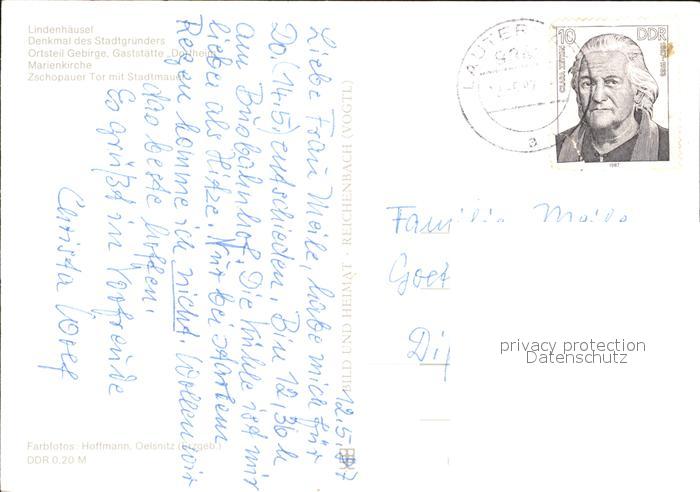 Lindenhäusel
Denkmal des Stadtgründers
Ortsteil Gebirge, Gaststätte „Dorfheim"
Marienkirche
Zschopauer Tor mit Stadtmauer
12.5.87
Liebe Frau Meile, habe mich für
Do. (14.5.) entschieden. Bin 12,30 h
am Busbahnhof. Die Kühle ist mir
lieber als Hitze. Nur bei starkem
Regen komme ich nicht. Wollen wir
das beste hoffen.
Es grüßt in Vorfreude
Christa Wolf
BILD UND HEIMAT · REICHENBACH (VOGTL)
Farbfotos: Hoffmann, Oelsnitz (Erzgeb.)
DDR 0,20 M
LAUTER
a
10 DDR
CLARA ZETKIN
1857-1933
1987
Familie Meile
Goet
privacy protection
Datenschutz